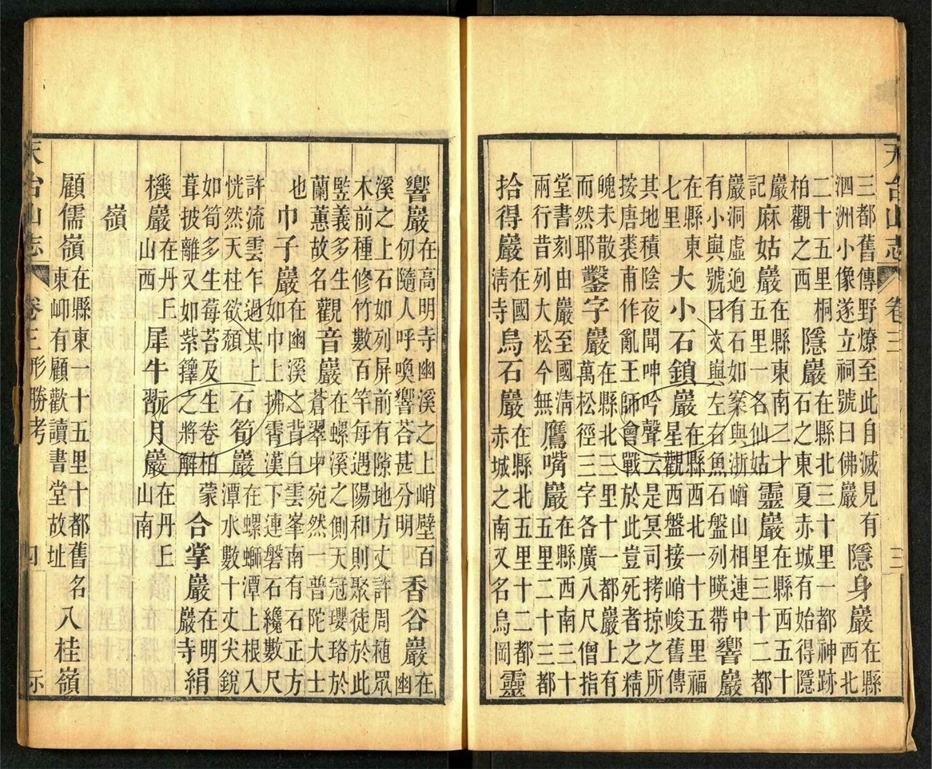 天台山志 卷三 三
三都舊傳野燎至此自滅見有
泗洲小像遂立祠號曰佛巖
隱身巖
在縣
西北
二十五里桐
柏觀之西
隱巖
在縣北三十里一都神跡
石之東夏赤城有始得隱
記
麻姑巖
在縣東南二
五里一名仙姑
靈巖
在縣西五十
里三十二都
巖洞虛迥有石如案與浙嶗山相連中
有小輿號曰文與左右魚石盤列暎帶
響巖
在縣東
七里
大小石鎖巖
在縣西一十五里福
星觀西北盤接峭峻舊傳
其地積陰夜聞呻吟聲云是冥司拷掠之所
按唐裘甫作亂王師會戰於此豈死者之精
魄未散
而然耶
鑿字巖
在縣北三十一都巖上有
萬松徑三字各廣八尺僧指
堂書刻由巖至國淸
兩行昔列大松今無
鷹嘴巖
在縣西南三十
五里二十三都
拾得巖
在國
淸寺
烏石巖
在縣北五里十二都
赤城之南又名烏岡
靈
響巖
在高明寺幽溪之上峭壁百
仞隨人呼喚響荅甚分明
香谷巖
在
幽
溪之上石如列屏前有隙地方丈許周蒔眾
木前種修竹數百竿每遇陽和則聚徒於此
竪義多生
蘭蕙故名
觀音巖
在螺溪之側天冠瓔珞於
蒼翠中宛然一普陀大士
也
巾子巖
在幽溪之背白雲峯南有石正方
如巾上拂霄漢下連磐石纔數尺
許流雲乍過其上
恍然天柱欲頹
石筍巖
在螺螄潭上根入
潭水數十丈尖銳
如筍多生莓苔及生卷柏蒙
茸披離又如紫籜之將解
合掌巖
在明
巖寺
絹
機巖
在丹丘
山西
犀牛翫月巖
在丹丘
山南
嶺
顧儒嶺
在縣東一十五里十都舊名八桂嶺
東峬有顧歡讀書堂故址
天台山志 卷三形勝考 四